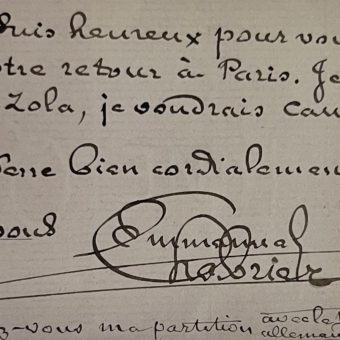 suis heureux pour vou
otre retour à Paris. Je
Zola, je voudrais cau
serre bien cordialemen
vous
Emmanuel
Chabrier
z-vous ma partition avec les
allemand